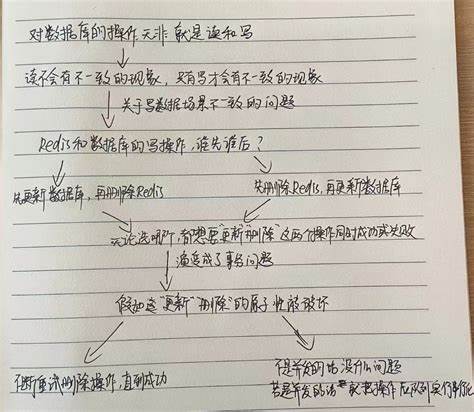 对数据库的操作无非就是读和写
读不会有不一致的现象，只有写才会有不一致的现象
关于写数据场景不一致的问题
Redis和数据库的写操作，谁先谁后？
先更新数据库，再删除Redis
先删除Redis，再更新数据库
无论选哪个，都想要"更新""删除"这两个操作同时成功或失败
演变成了事务问题
假如这"更新""删除"的原子性被破坏
不断重试删除操作，直到成功
不是并发的话没什么问题
若是并发的话 就把操作 队列 串行化